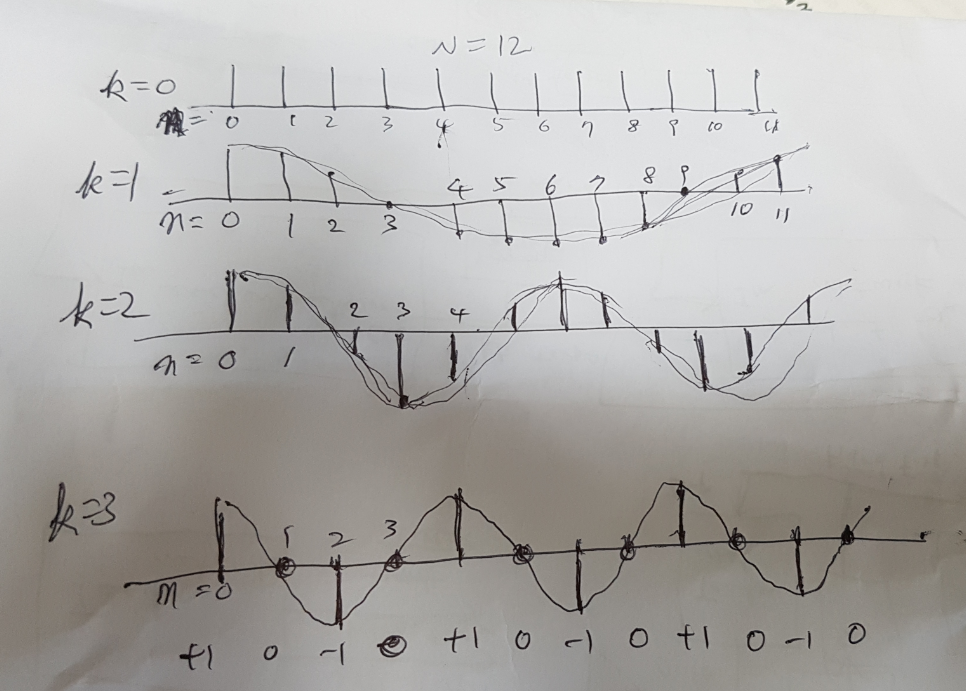 N = 12
k=0
n= 0 1 2 3 4 5 6 7 8 9 10 11
k=1
4 5 6 7 8 9
n= 0 1 2 3 10 11
k=2
2 3 4
n= 0 1
k=3
1 2 3
n =0
+1 0 -1 0 +1 0 -1 0 +1 0 -1 0